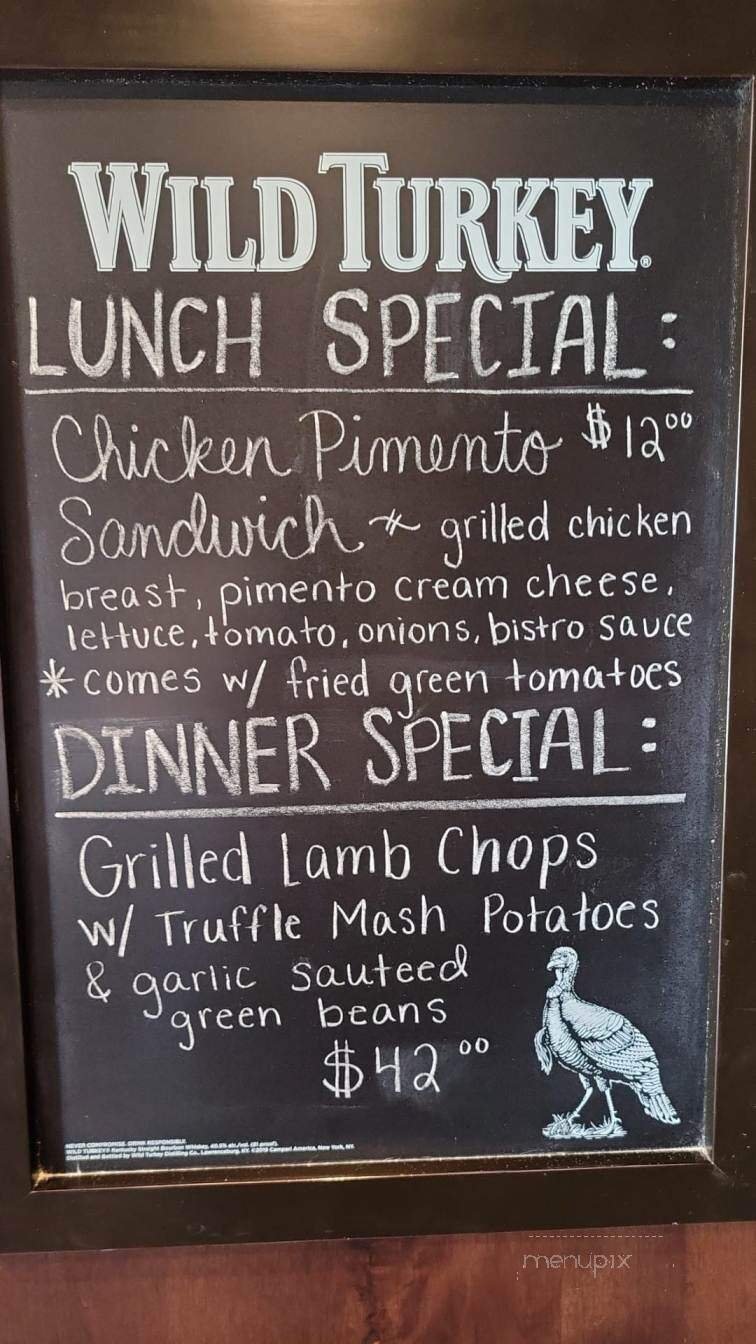 WILD TURKEY®
LUNCH SPECIAL:
Chicken Pimento $12⁰⁰
Sandwich * grilled chicken
breast, pimento cream cheese,
lettuce, tomato, onions, bistro sauce
*comes w/ fried green tomatoes
DINNER SPECIAL:
Grilled Lamb Chops
w/ Truffle Mash Potatoes
& garlic sauteed
green beans
$42⁰⁰
NEVER COMPROMISE. DRINK RESPONSIBLY.
WILD TURKEY® Kentucky Straight Bourbon Whiskey, 40.5% alc./vol. (81 proof).
Distilled and Bottled by Wild Turkey Distilling Co., Lawrenceburg, KY. ©2019 Campari America, New York, NY.
menupix